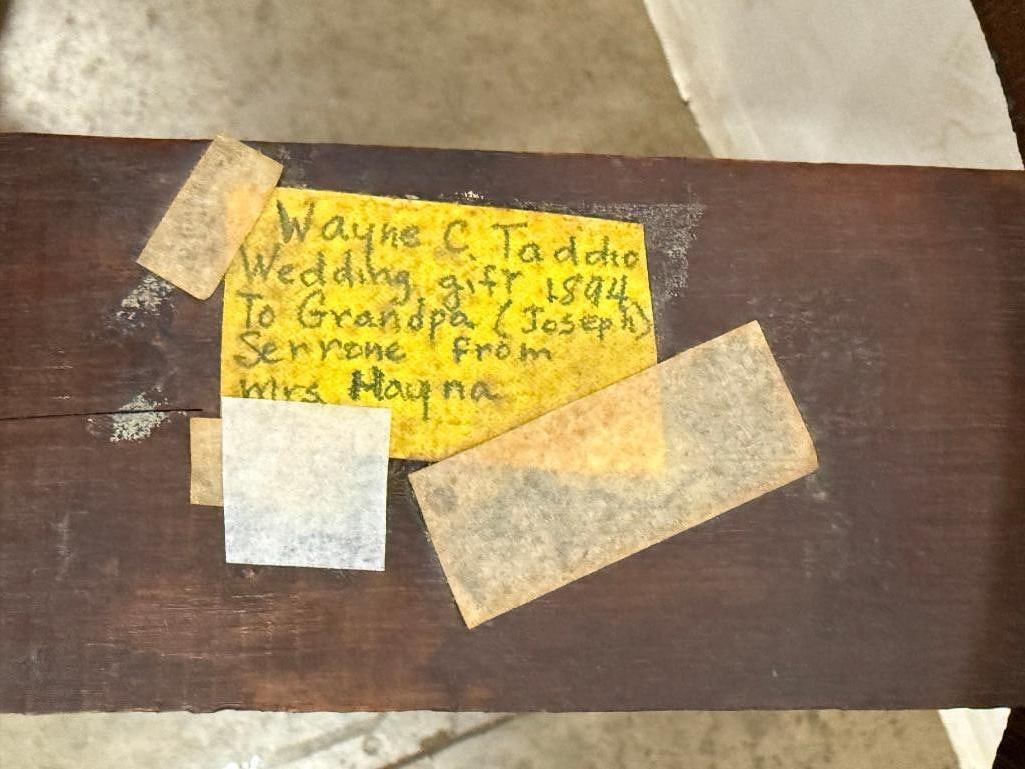 Wayne C. Taddio
Wedding gift 1894
To Grandpa (Joseph)
Serrone from
Mrs Hayna